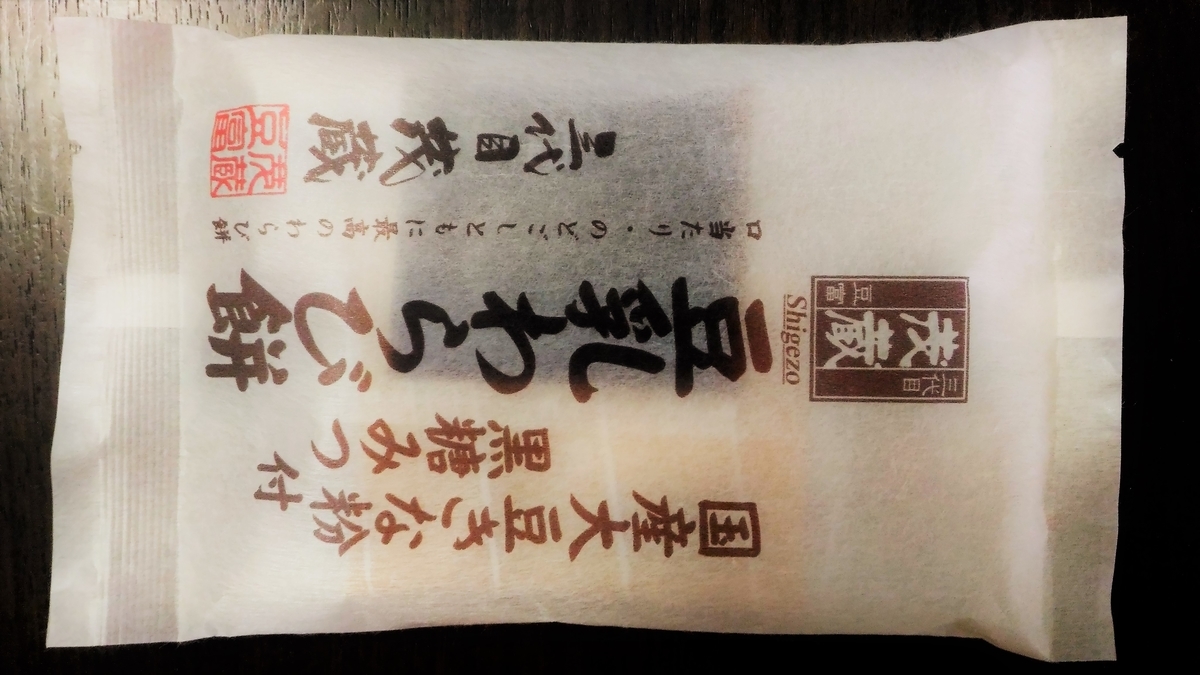 三代目
茂蔵
豆富
Shigezo
国産大豆きな粉
黒糖みつ
付
豆乳わらび餅
口当たり・のどごしともに最高のわらび餅
三代目茂蔵
茂蔵
豆富